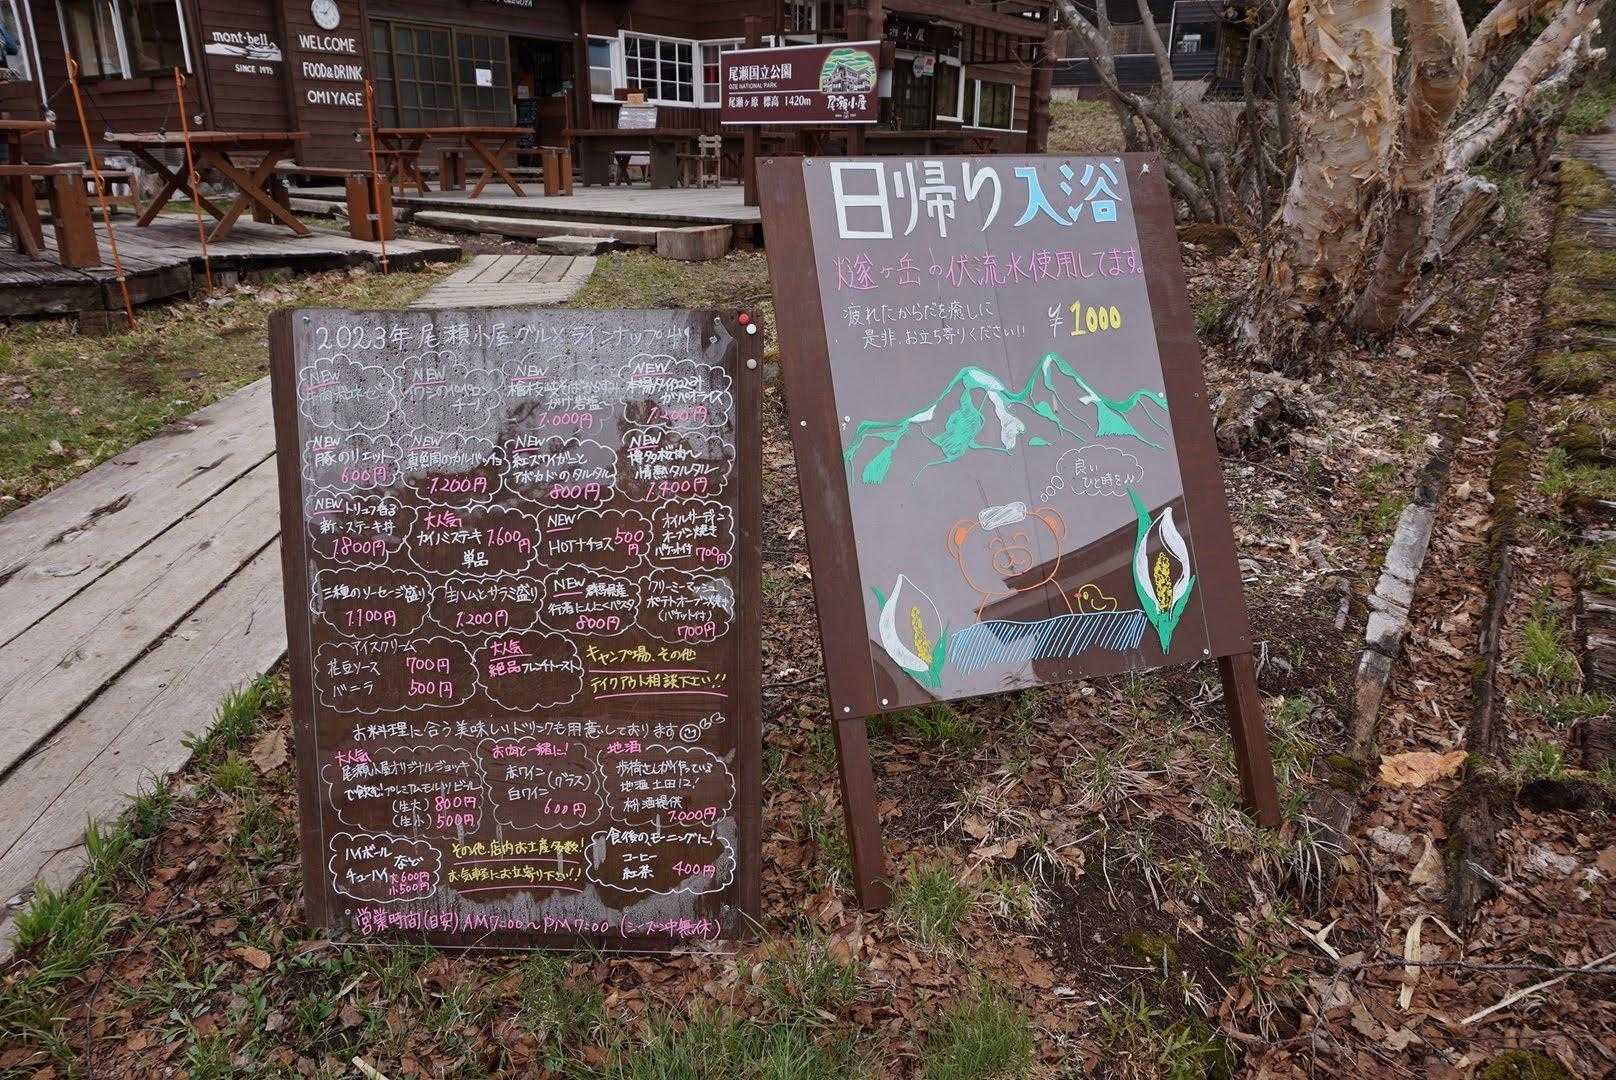 mont-bell
SINCE 1975
WELCOME
FOOD&DRINK
OMIYAGE
尾瀬国立公園
OZE NATIONAL PARK
尾瀬ヶ原 標高 1420m
尾瀬小屋
日帰り入浴
燧ヶ岳の伏流水使用してます。
疲れたからだを癒しに
是非、お立ち寄りください!!
¥1000
良い
ひと時を♪♪
2023年 尾瀬小屋グルメラインナップ
NEW
NEW
NEW
1,000円
NEW
NEW
豚のリエット
600円
NEW
1,200円
NEW
紅ズワイガニと
アボカドのタルタル
800円
NEW
博多桜肉の
情熱タルタル
1,400円
NEW トリュフ香る
新・ステーキ丼
1,800円
大人気
カイノミステーキ 1,600円
単品
NEW
HOTナチョス 500円
オイルサーディン
オーブン焼き
バケット付 700円
三種のソーセージ盛り
1,100円
生ハムとサラミ盛り
1,200円
NEW 群馬県産
行者にんにくパスタ
800円
クリーミーマッシュ
ポテトオーブン焼き
(バケット付)
700円
アイスクリーム
花豆ソース 700円
バニラ 500円
大人気
絶品フレンチトースト
キャンプ場、その他
テイクアウト相談下さい!!
お料理に合う美味しいドリンクも用意しております
大人気
尾瀬小屋オリジナルジョッキ
で飲むプレミアムモルツビール
(生大) 800円
(生小) 500円
お肉と一緒に!
赤ワイン
白ワイン (グラス)
600円
地酒
歩荷さんが作っている
地酒 土田12!
枡酒提供
1,000円
ハイボール
チューハイ など
大600円
小500円
その他、店内お土産多数!
お気軽にお立寄り下さい!!
食後の、モーニングに!
コーヒー
紅茶 400円
営業時間(目安) AM7:00〜PM7:00 (シーズン中無休)